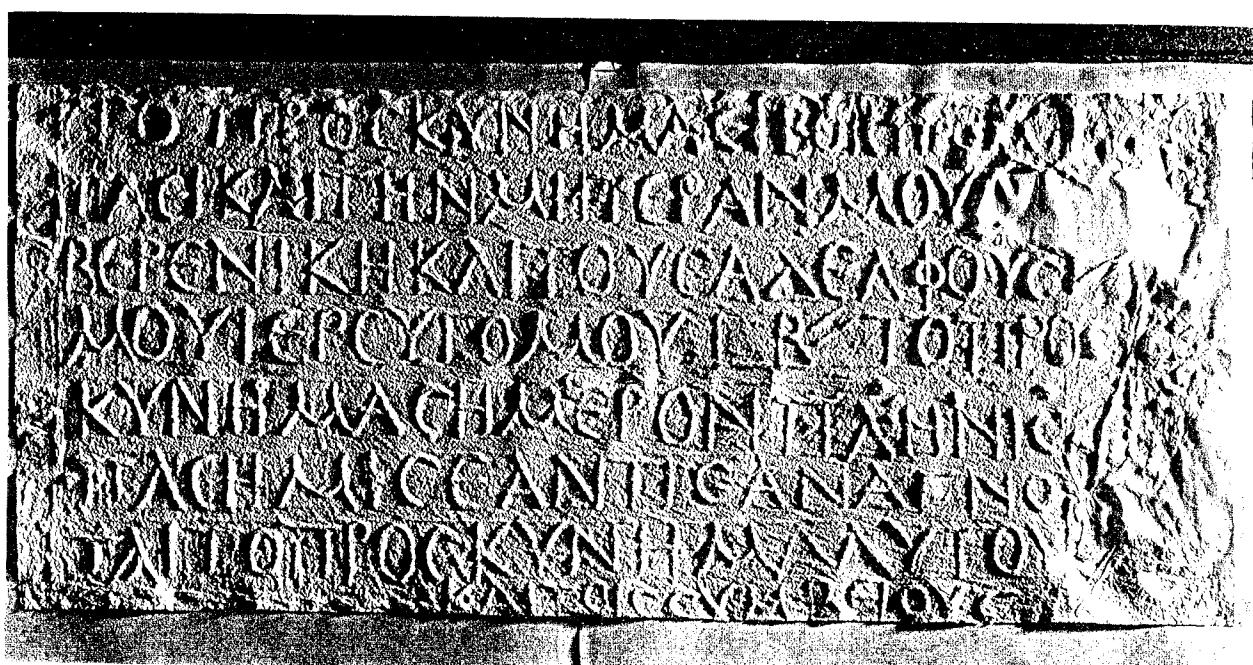 ΤΟ ΠΡΟСΚΥΝΗΜΑ
ΠΑСΙ ΚΑΙ ΤΗΝ ΜΗΤΕΡΑΝ ΜΟΥ
ΒΕΡΕΝΙΚΗ ΚΑΙ ΤΟΥС ΑΔΕΛΦΟΥС
ΜΟΥ ΙΕΡΟΥ ΓΟΜΟΥ L Β ΤΟ ΠΡΟС
ΚΥΝΗΜΑ СΗΜΕΡΟΝ
ΠΑСΗΜΙС С ΑΝ ΤΙС ΑΝΑΓΝΟ
ΤΑΙ ΤΟ ΠΡΟСΚΥΝΗΜΑ ΑΥΤΟΥ